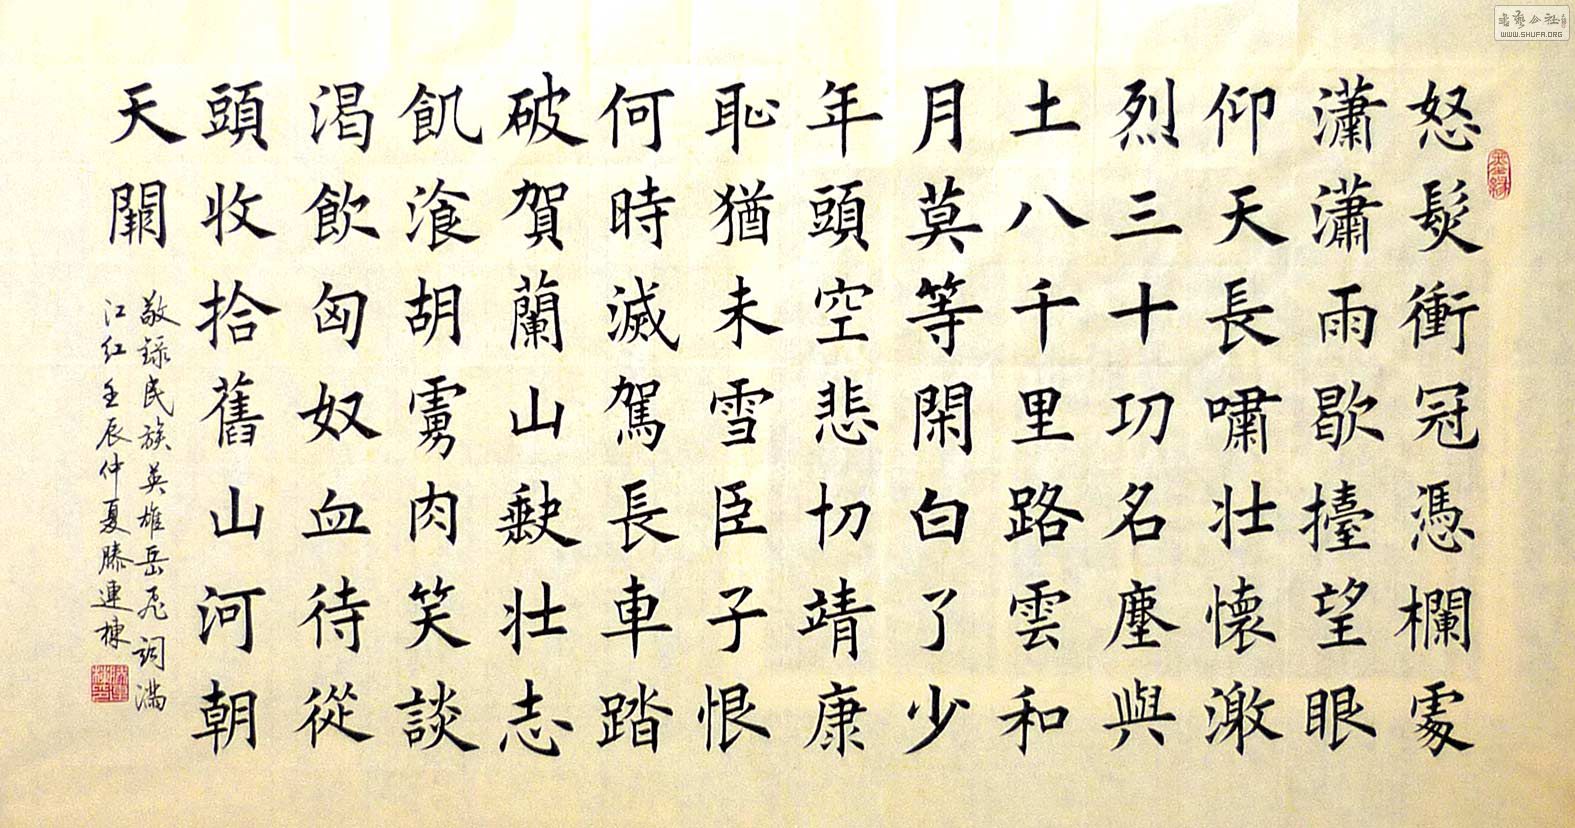 怒髮衝冠憑欄處
瀟瀟雨歇擡望眼
仰天長嘯壯懷激
烈三十功名塵與
土八千里路雲和
月莫等閑白了少
年頭空悲切靖康
恥猶未雪臣子恨
何時滅駕長車踏
破賀蘭山缺壯志
飢湌胡虜肉笑談
渴飲匈奴血待從
頭收拾舊山河朝
天闕
敬録民族英雄岳飛詞滿
江紅壬辰仲夏滕連棟
WWW.SHUFA.ORG